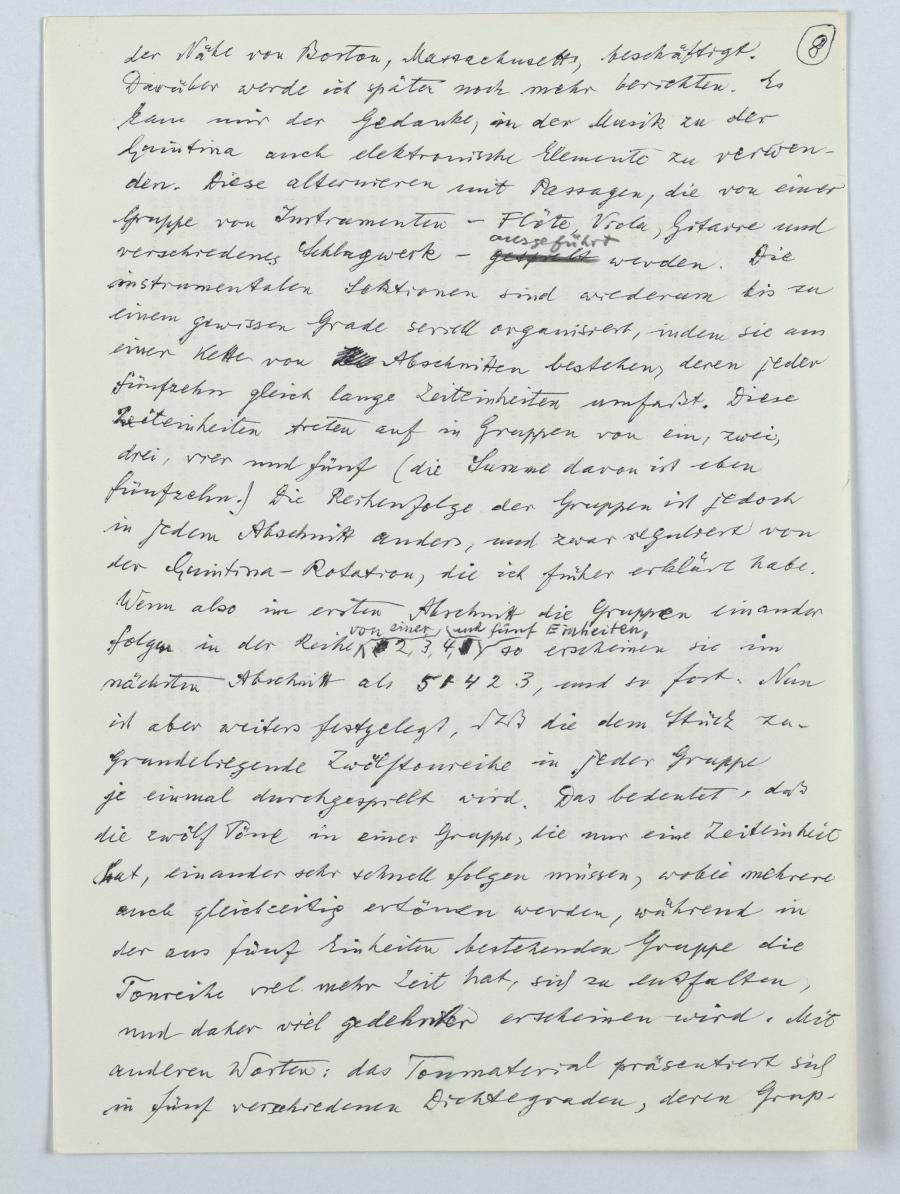 8
der Nähe von Boston, Massachusetts, beschäftigt.
Darüber werde ich später noch mehr berichten. Es
kam mir der Gedanke, in der Musik zu der
Quintina auch elektronische Elemente zu verwen-
den. Diese alternieren mit Passagen, die von einer
Gruppe von Instrumenten – Flöte, Viola, Gitarre und
ausgeführt
verschiedenes Schlagwerk – gespielt werden. Die
instrumentalen Sektionen sind wiederum bis zu
einem gewissen Grade seriell organisiert, indem sie aus
einer Kette von Abschnitten bestehen, deren jeder
fünfzehn gleich lange Zeiteinheiten umfaßt. Diese
Zeiteinheiten treten auf in Gruppen von ein, zwei,
drei, vier und fünf (die Summe davon ist eben
fünfzehn.) Die Reihenfolge der Gruppen ist jedoch
in jedem Abschnitt anders, und zwar reguliert von
der Quintina-Rotation, die ich früher erklärt habe.
Wenn also im ersten Abschnitt die Gruppen einander
von einer, und fünf Einheiten,
folgen in der Reihe 2, 3, 4, so erscheinen sie im
nächsten Abschnitt als 5 1 4 2 3, und so fort. Nun
ist aber weiters festgelegt, daß die dem Stück zu-
grundeliegende Zwölftonreihe in jeder Gruppe
je einmal durchgespielt wird. Das bedeutet, daß
die zwölf Töne in einer Gruppe, die nur eine Zeiteinheit
hat, einander sehr schnell folgen müssen, wobei mehrere
auch gleichzeitig ertönen werden, während in
der aus fünf Einheiten bestehenden Gruppe die
Tonreihe viel mehr Zeit hat, sich zu entfalten,
und daher viel gedehnter erscheinen wird. Mit
anderen Worten: das Tonmaterial präsentiert sich
in fünf verschiedenen Dichtegraden, deren Grup-